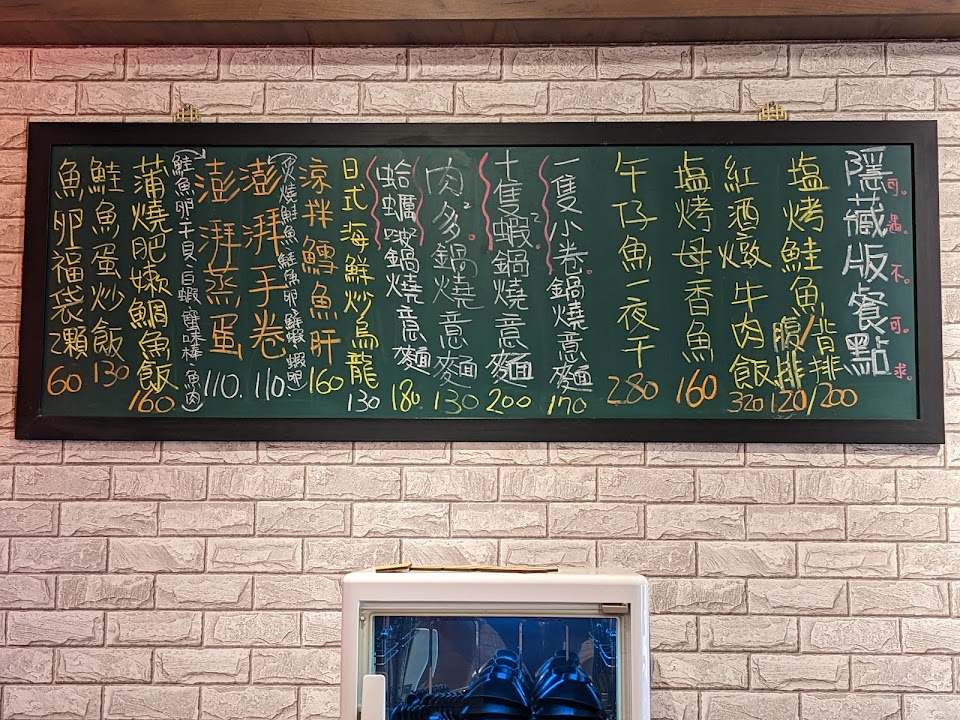 隱藏版餐點
可。遇。不。可。求。
塩烤鮭魚/背排 200
腹排 120/
紅酒燉牛肉飯 320
塩烤母香魚 160
午仔魚一夜干 280
一隻小卷。鍋燒意麵 170
十隻蝦2。鍋燒意麵 200
肉多2。鍋燒意麵 130
蛤蠣啵鍋燒意麵 180
日式海鮮炒烏龍 130
涼拌鱈魚肝 160
(火燒鮭魚、鮭魚卵、鮮蝦、蝦卵)
澎湃手卷 110.
澎湃蒸蛋 110.
(鮭魚卵、干貝、白蝦、蟹味棒、魚肉)
蒲燒肥嫩鯛魚飯 160
鮭魚蛋炒飯 130
魚卵福袋2顆 60